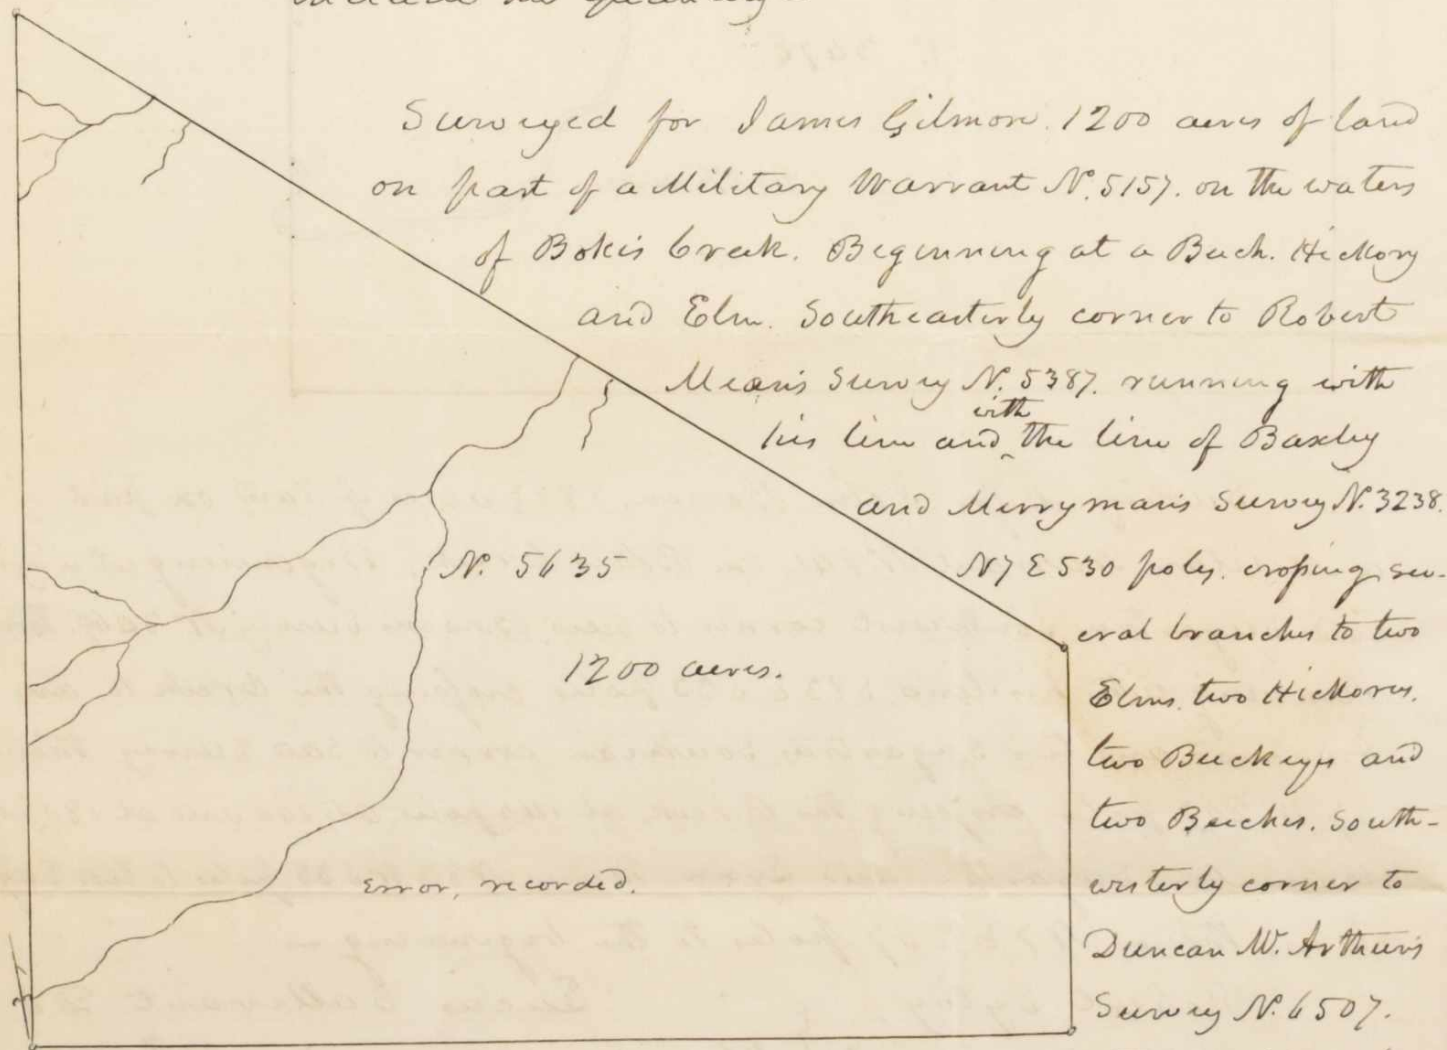 Surveyed for James Gilmore. 1200 acres of land
on part of a Military Warrant No. 5157. on the waters
of Bokis Creek. Beginning at a Beech. Hickory
and Elm. Southeasterly corner to Robert
Mean's Survey No. 5387. running with
his line and with the line of Baxley
and Merryman's Survey No. 3238.
N7E530 poles. crossing sev-
eral branches to two
Elms. two Hickores.
two Buckeyes and
two Beeches. South-
westerly corner to
Duncan Mc. Arthur's
Survey No. 6507.
No. 5635
1200 acres.
Error, recorded.